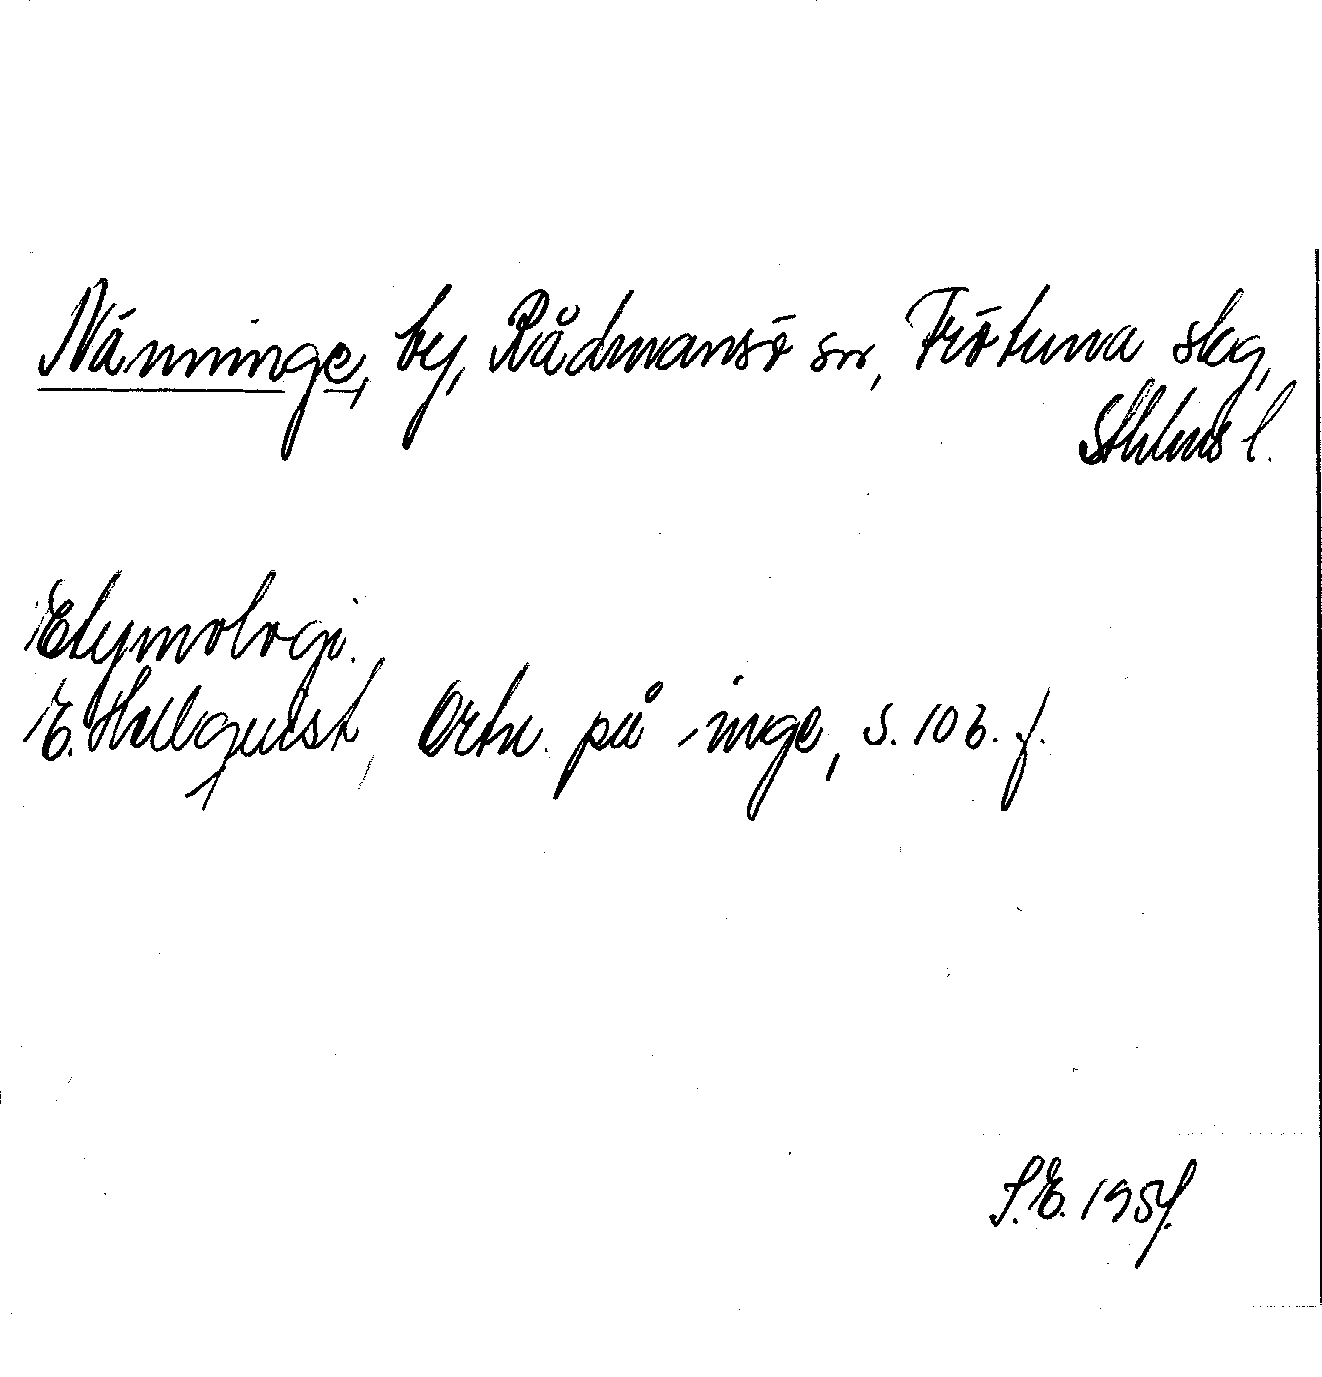 Nänninge, by, Rådmansö sn, Frötuna skg,
Sthlms l.
Etymologi.
E. Hellquist, Ortn. på -inge, s. 103. f.
S.E. 1957.